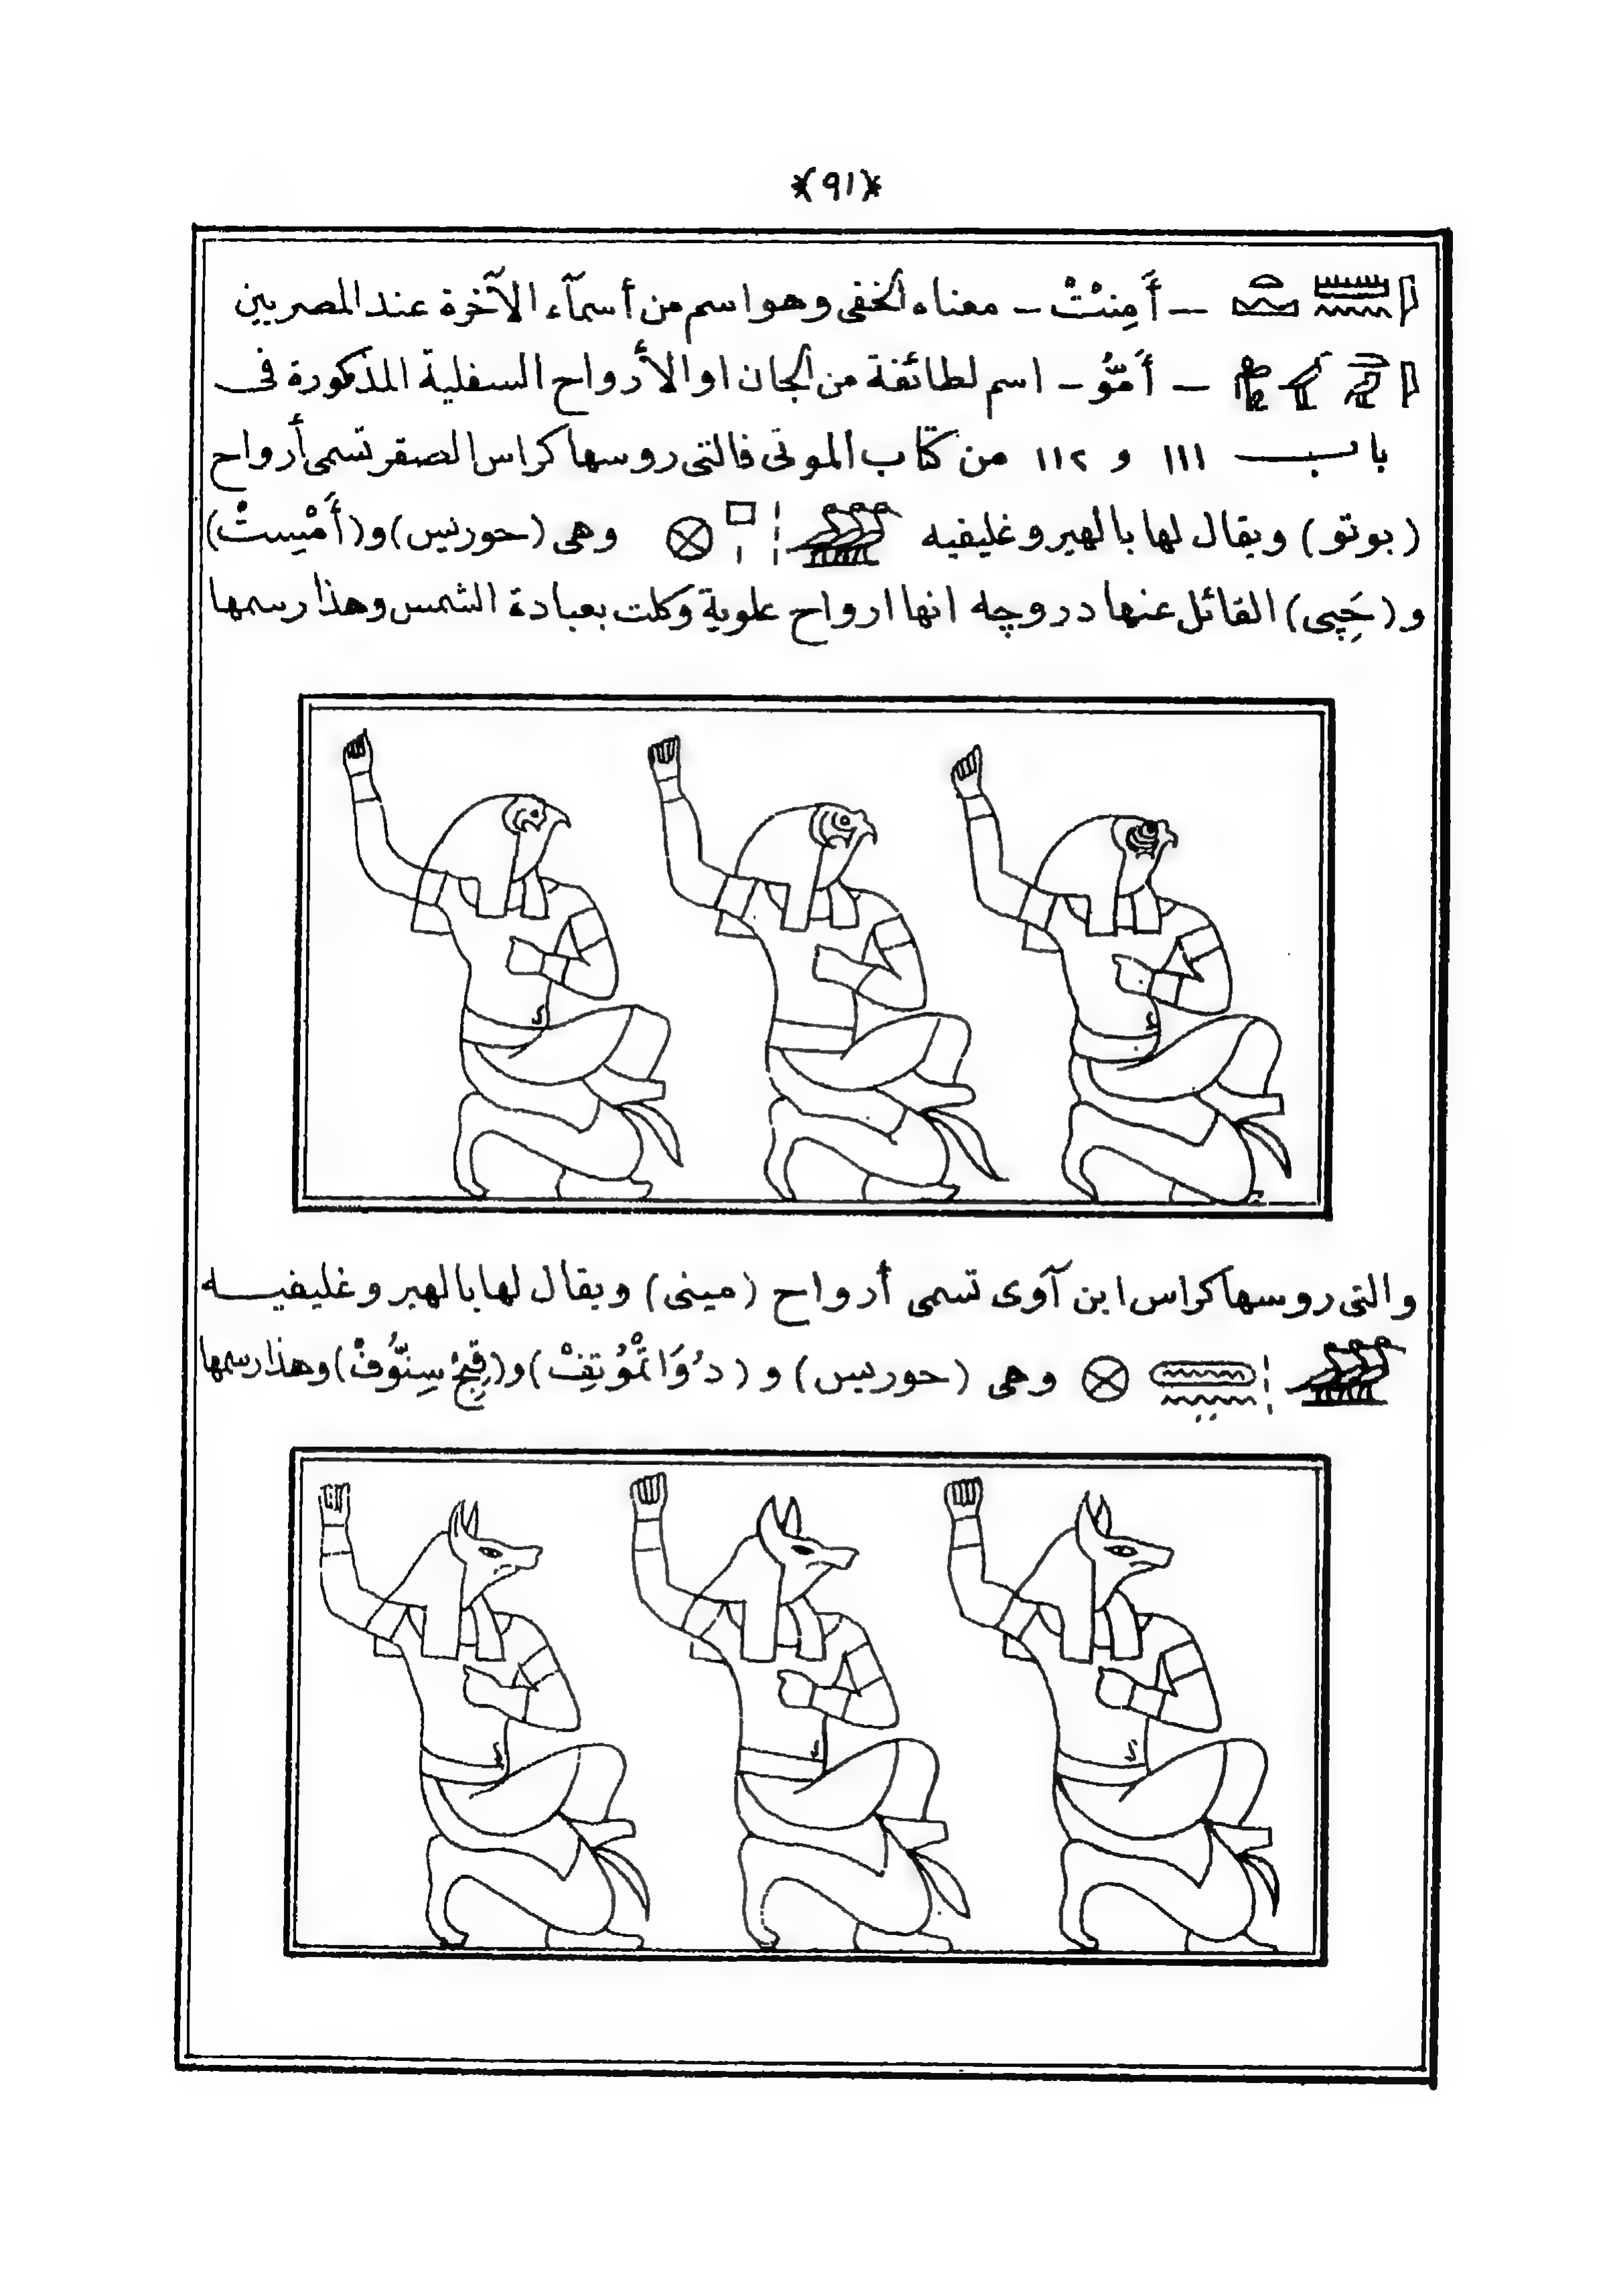 ﴿٩١﴾
— أَمِنتْ — معناه الخفى وهو اسم من أسمآء الآخرة عند المصريين
— أَمّوُ — اسم لطائفة من الجان او الأرواح السفلية المذكورة فى
باب ١١١ و ١١٢ من كتاب الموتى فالتى روسها كراس الصقر تسمى أرواح
(بوتو) ويقال لها بالهيروغليفيه وهى (حوريس) و (أَمْيستْ)
و (حَپِى) القائل عنها دروچه انها ارواح علوية وكلت بعبادة الشمس وهذا رسمها
والتى روسها كراس ابن آوى تسمى أرواح (مينى) ويقال لها بالهيروغليفيه
وهى (حوريس) و (دُوَاتْمُوتِفْ) و وهذا رسمها